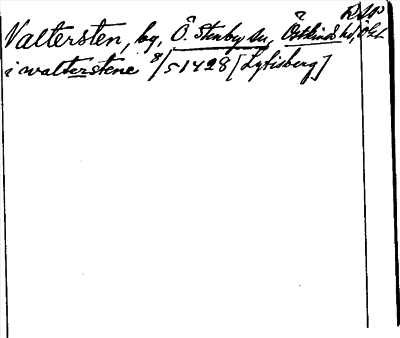 RAP
Valtersten, by, Ö. Stenby sn, Östkinds hd, Ögl.
i walterstene 8/5 1428 [Lytisberg]